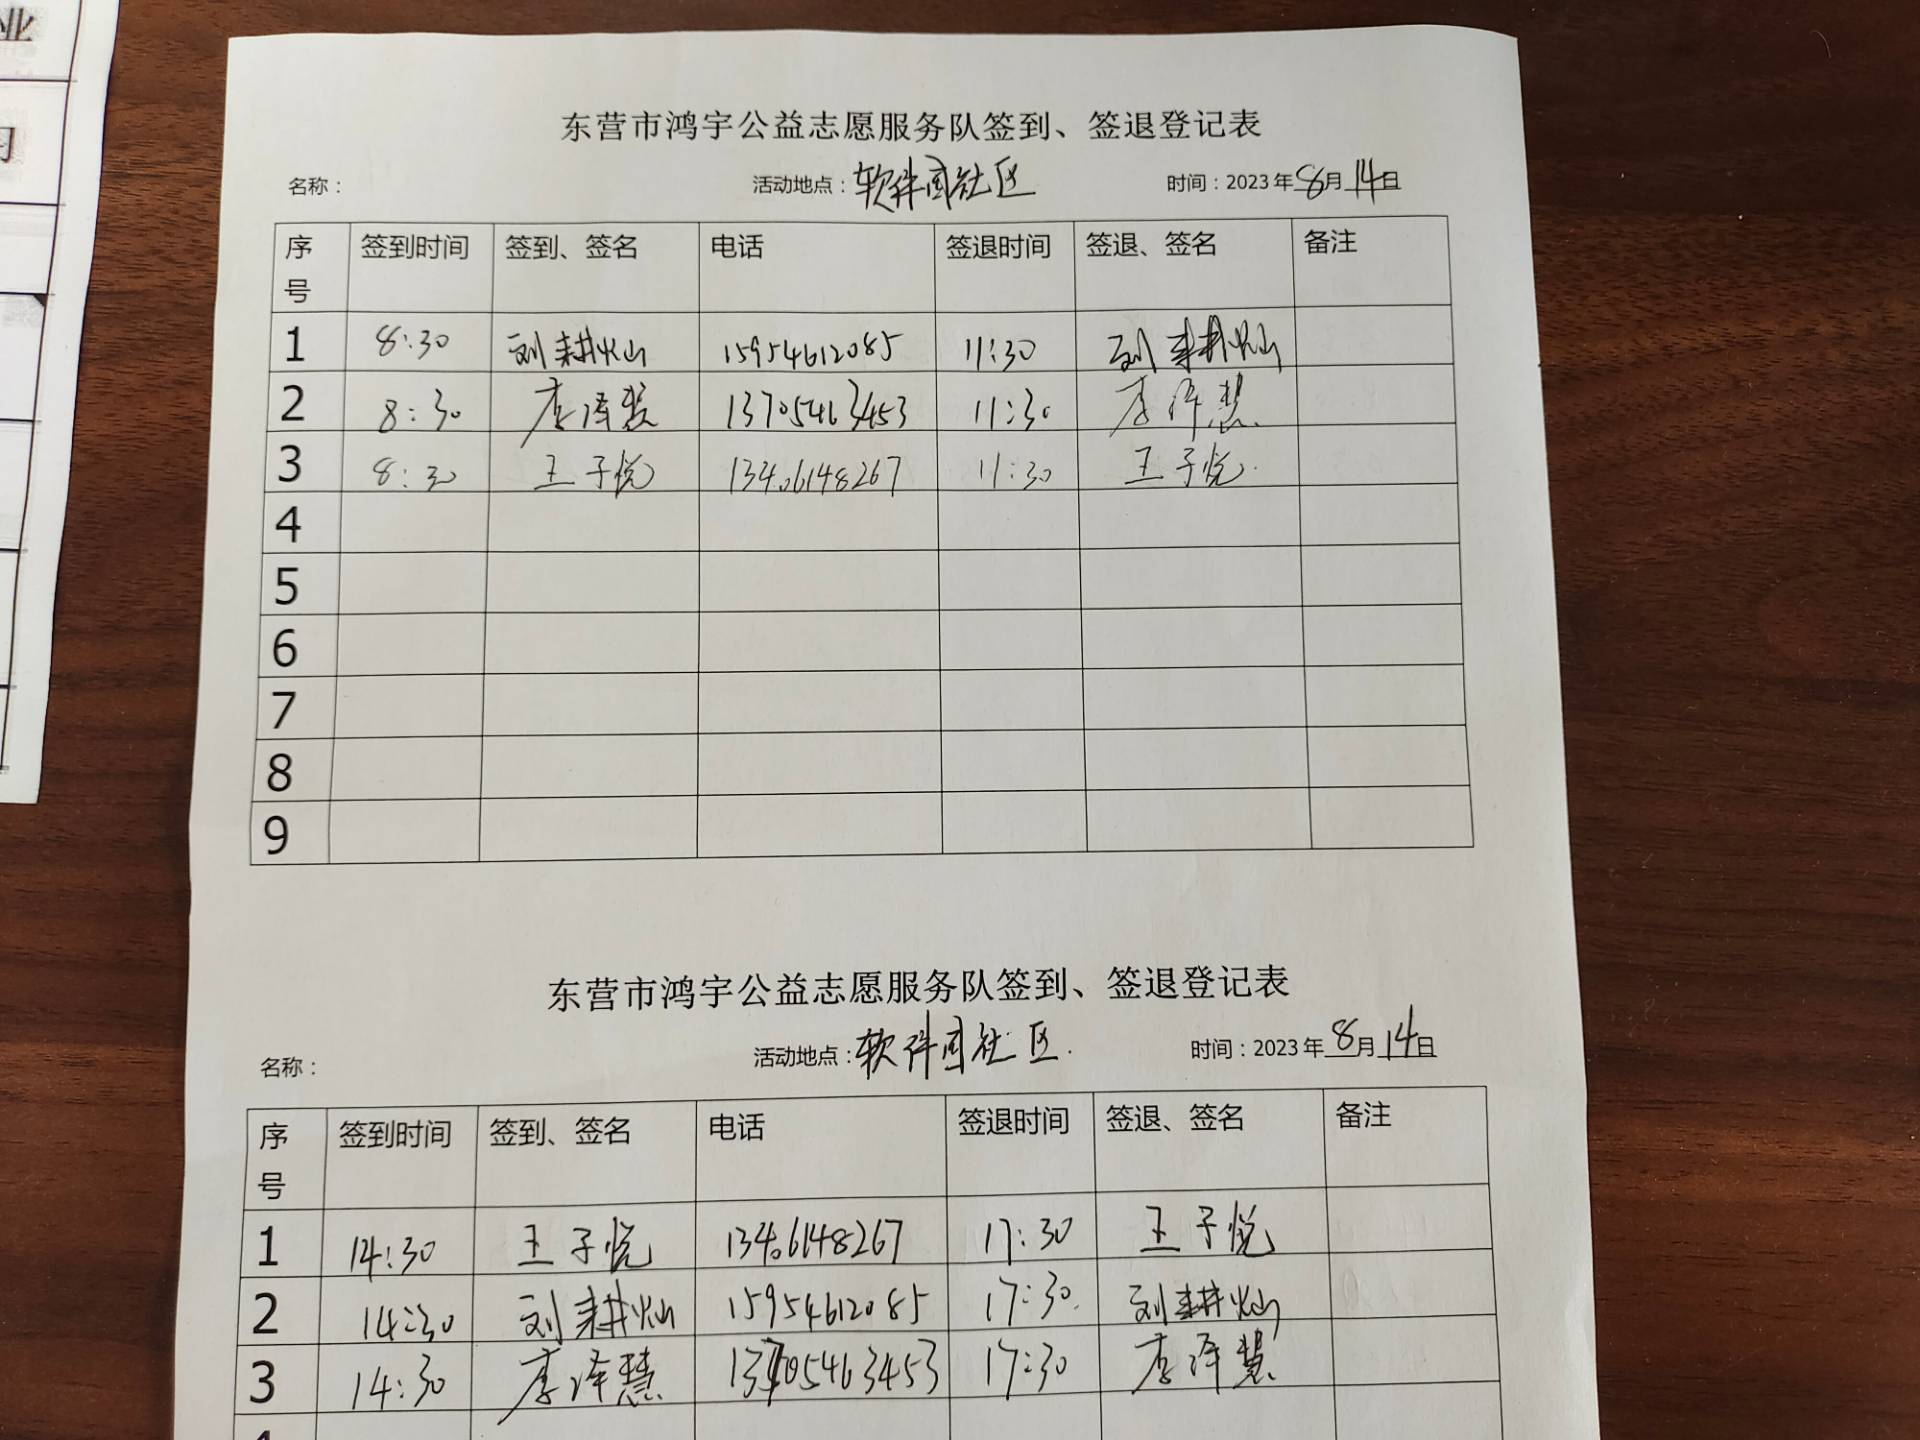 业
东营市鸿宇公益志愿服务队签到、签退登记表
名称： 活动地点：软件园社区 时间：2023年8月14日
序号 签到时间 签到、签名 电话 签退时间 签退、签名 备注
1 8:30 刘耕灿 15954612085 11:30 刘耕灿
2 8:30 李泽慧 13705463453 11:30 李泽慧
3 8:30 王子悦 13406148267 11:30 王子悦
4
5
6
7
8
9
东营市鸿宇公益志愿服务队签到、签退登记表
名称： 活动地点：软件园社区. 时间：2023年8月14日
序号 签到时间 签到、签名 电话 签退时间 签退、签名 备注
1 14:30 王子悦 13406148267 17:30 王子悦
2 14:30 刘耕灿 15954612085 17:30 刘耕灿
3 14:30 李泽慧 13705463453 17:30 李泽慧